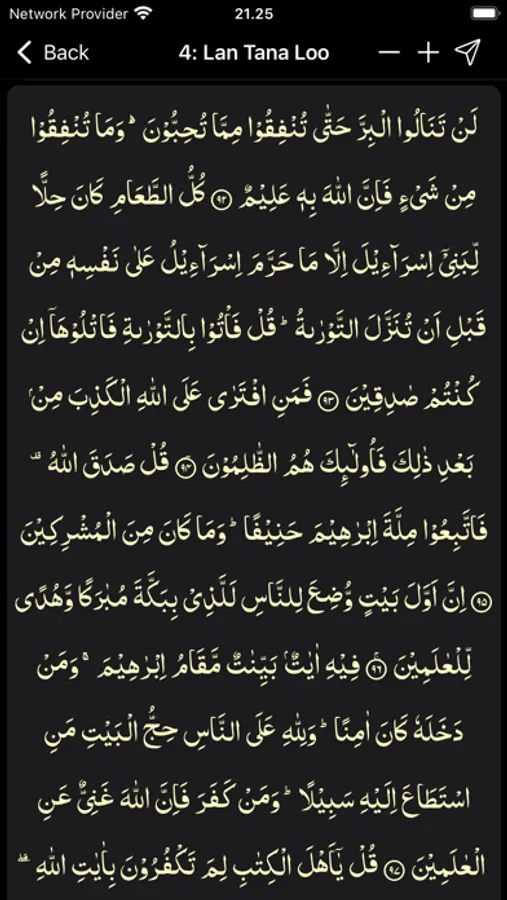 Network Provider 21.25
Back 4: Lan Tana Loo
لَنْ تَنَالُوا الْبِرَّ حَتّٰى تُنْفِقُوْا مِمَّا تُحِبُّوْنَ ؕ وَمَا تُنْفِقُوْا
مِنْ شَىْءٍ فَاِنَّ اللّٰهَ بِهٖ عَلِيْمٌ ۝۹۲ كُلُّ الطَّعَامِ كَانَ حِلًّا
لِّبَنِىْۤ اِسْرَآءِيْلَ اِلَّا مَا حَرَّمَ اِسْرَآءِيْلُ عَلٰى نَفْسِهٖ مِنْ
قَبْلِ اَنْ تُنَزَّلَ التَّوْرٰٮةُ ؕ قُلْ فَاْتُوْا بِالتَّوْرٰٮةِ فَاتْلُوْهَاۤ اِنْ
كُنْتُمْ صٰدِقِيْنَ ۝۹۳ فَمَنِ افْتَرٰى عَلَى اللّٰهِ الْكَذِبَ مِنْۢ
بَعْدِ ذٰلِكَ فَاُولٰٓٮِٕكَ هُمُ الظّٰلِمُوْنَ ۝۹۴ قُلْ صَدَقَ اللّٰهُ ۗ
فَاتَّبِعُوْا مِلَّةَ اِبْرٰهِيْمَ حَنِيْفًا ؕ وَمَا كَانَ مِنَ الْمُشْرِكِيْنَ
۝۹۵ اِنَّ اَوَّلَ بَيْتٍ وُّضِعَ لِلنَّاسِ لَلَّذِىْ بِبَكَّةَ مُبٰرَكًا وَّهُدًى
لِّلْعٰلَمِيْنَ ۝۹۶ فِيْهِ اٰيٰتٌۢ بَيِّنٰتٌ مَّقَامُ اِبْرٰهِيْمَ ۚ وَمَنْ
دَخَلَهٗ كَانَ اٰمِنًا ؕ وَلِلّٰهِ عَلَى النَّاسِ حِجُّ الْبَيْتِ مَنِ
اسْتَطَاعَ اِلَيْهِ سَبِيْلًا ؕ وَمَنْ كَفَرَ فَاِنَّ اللّٰهَ غَنِىٌّ عَنِ
الْعٰلَمِيْنَ ۝۹۷ قُلْ يٰۤاَهْلَ الْكِتٰبِ لِمَ تَكْفُرُوْنَ بِاٰيٰتِ اللّٰهِ ۖ